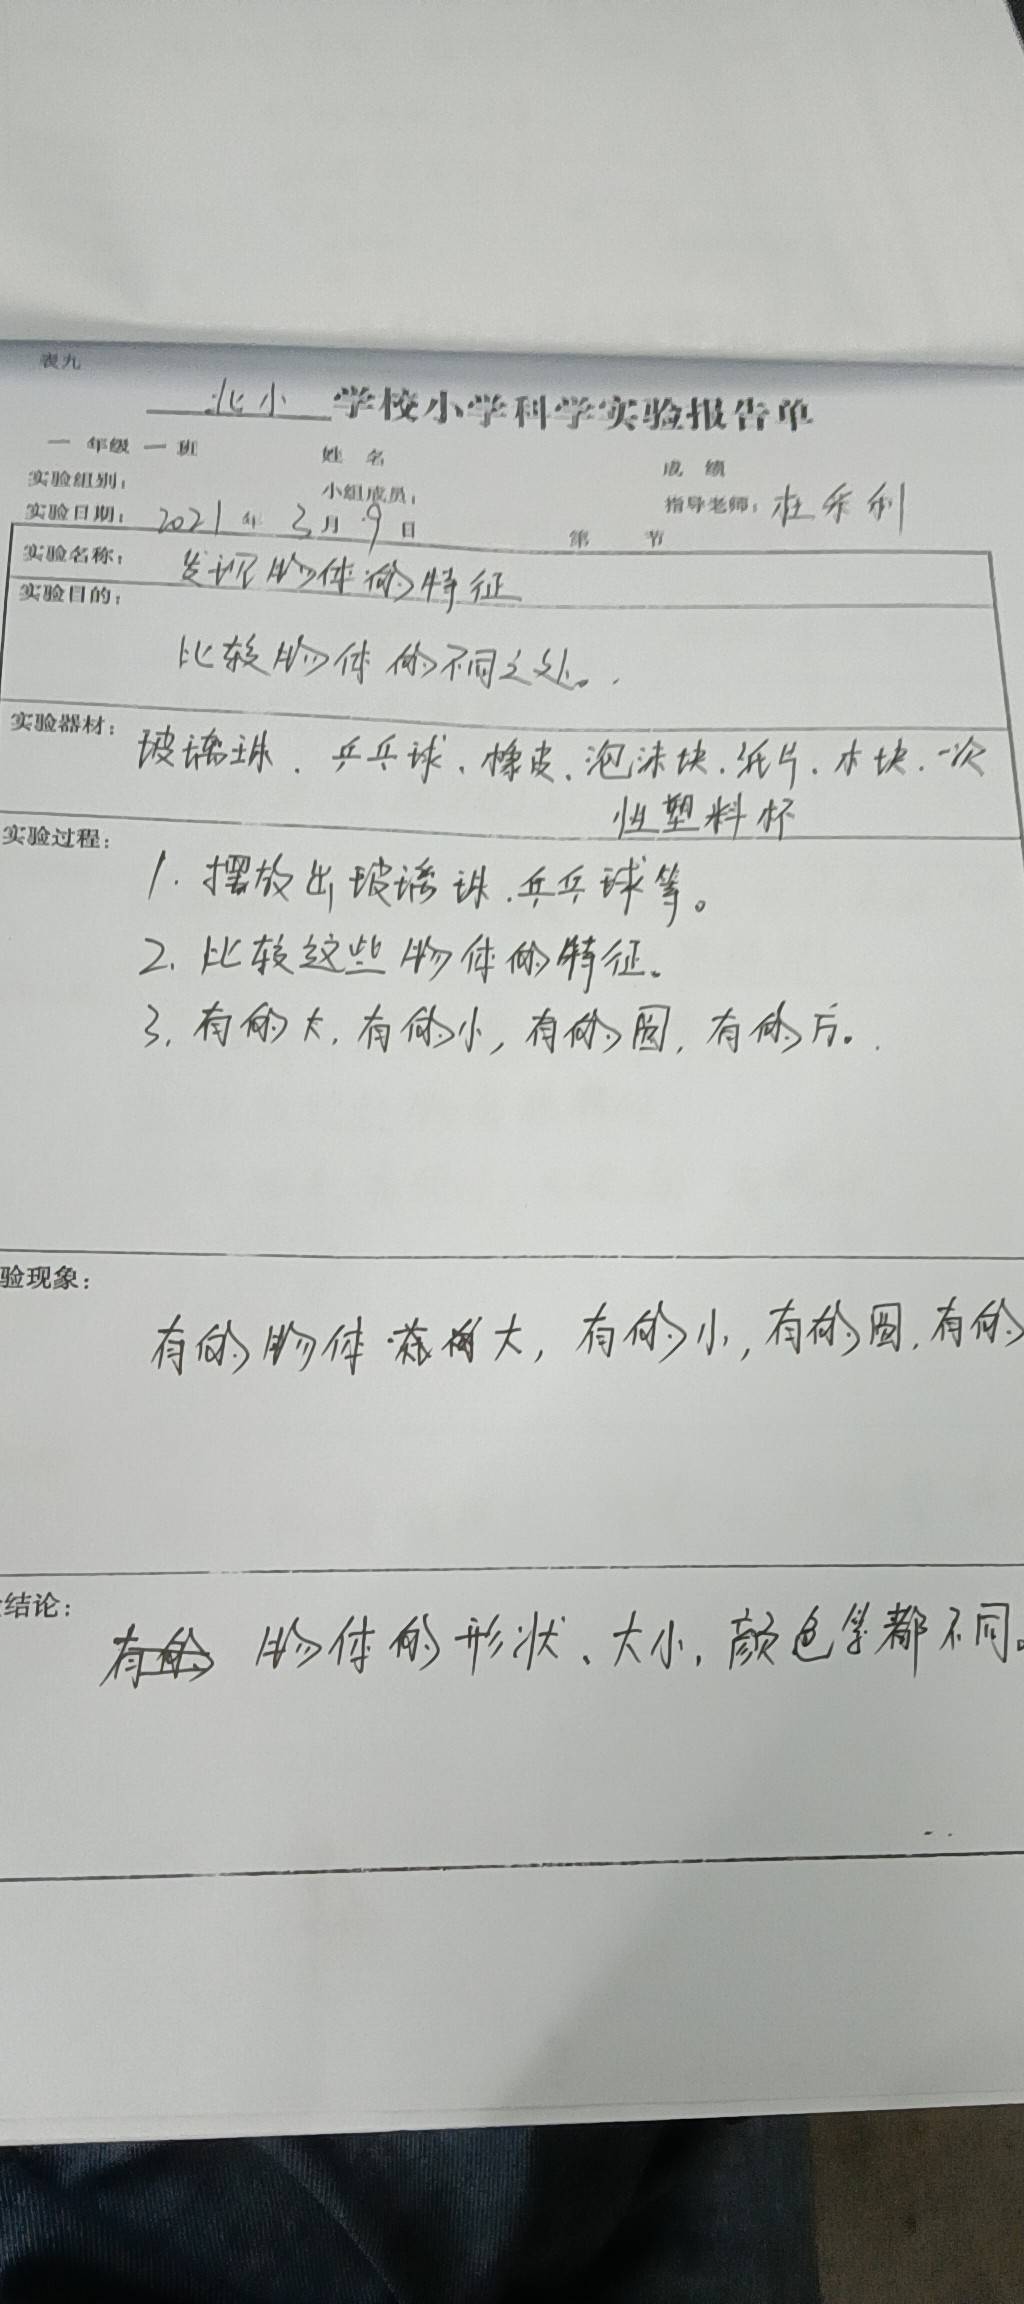 表九
北小 学校小学科学实验报告单
一 年级 一 班 姓 名 成 绩
实验组别： 小组成员： 指导老师：杜乐利
实验日期：2021 年 3 月 9 日 第 节
实验名称： 发现物体的特征
实验目的：
比较物体的不同之处。
实验器材： 玻璃珠、乒乓球、橡皮、泡沫块、纸片、木块、一次
性塑料杯
实验过程：
1. 摆放出玻璃珠、乒乓球等。
2. 比较这些物体的特征。
3. 有的大，有的小，有的圆，有的方。
验现象：
有的物体 大，有的小，有的圆，有的
结论：
有的 物体的形状、大小、颜色等都不同。